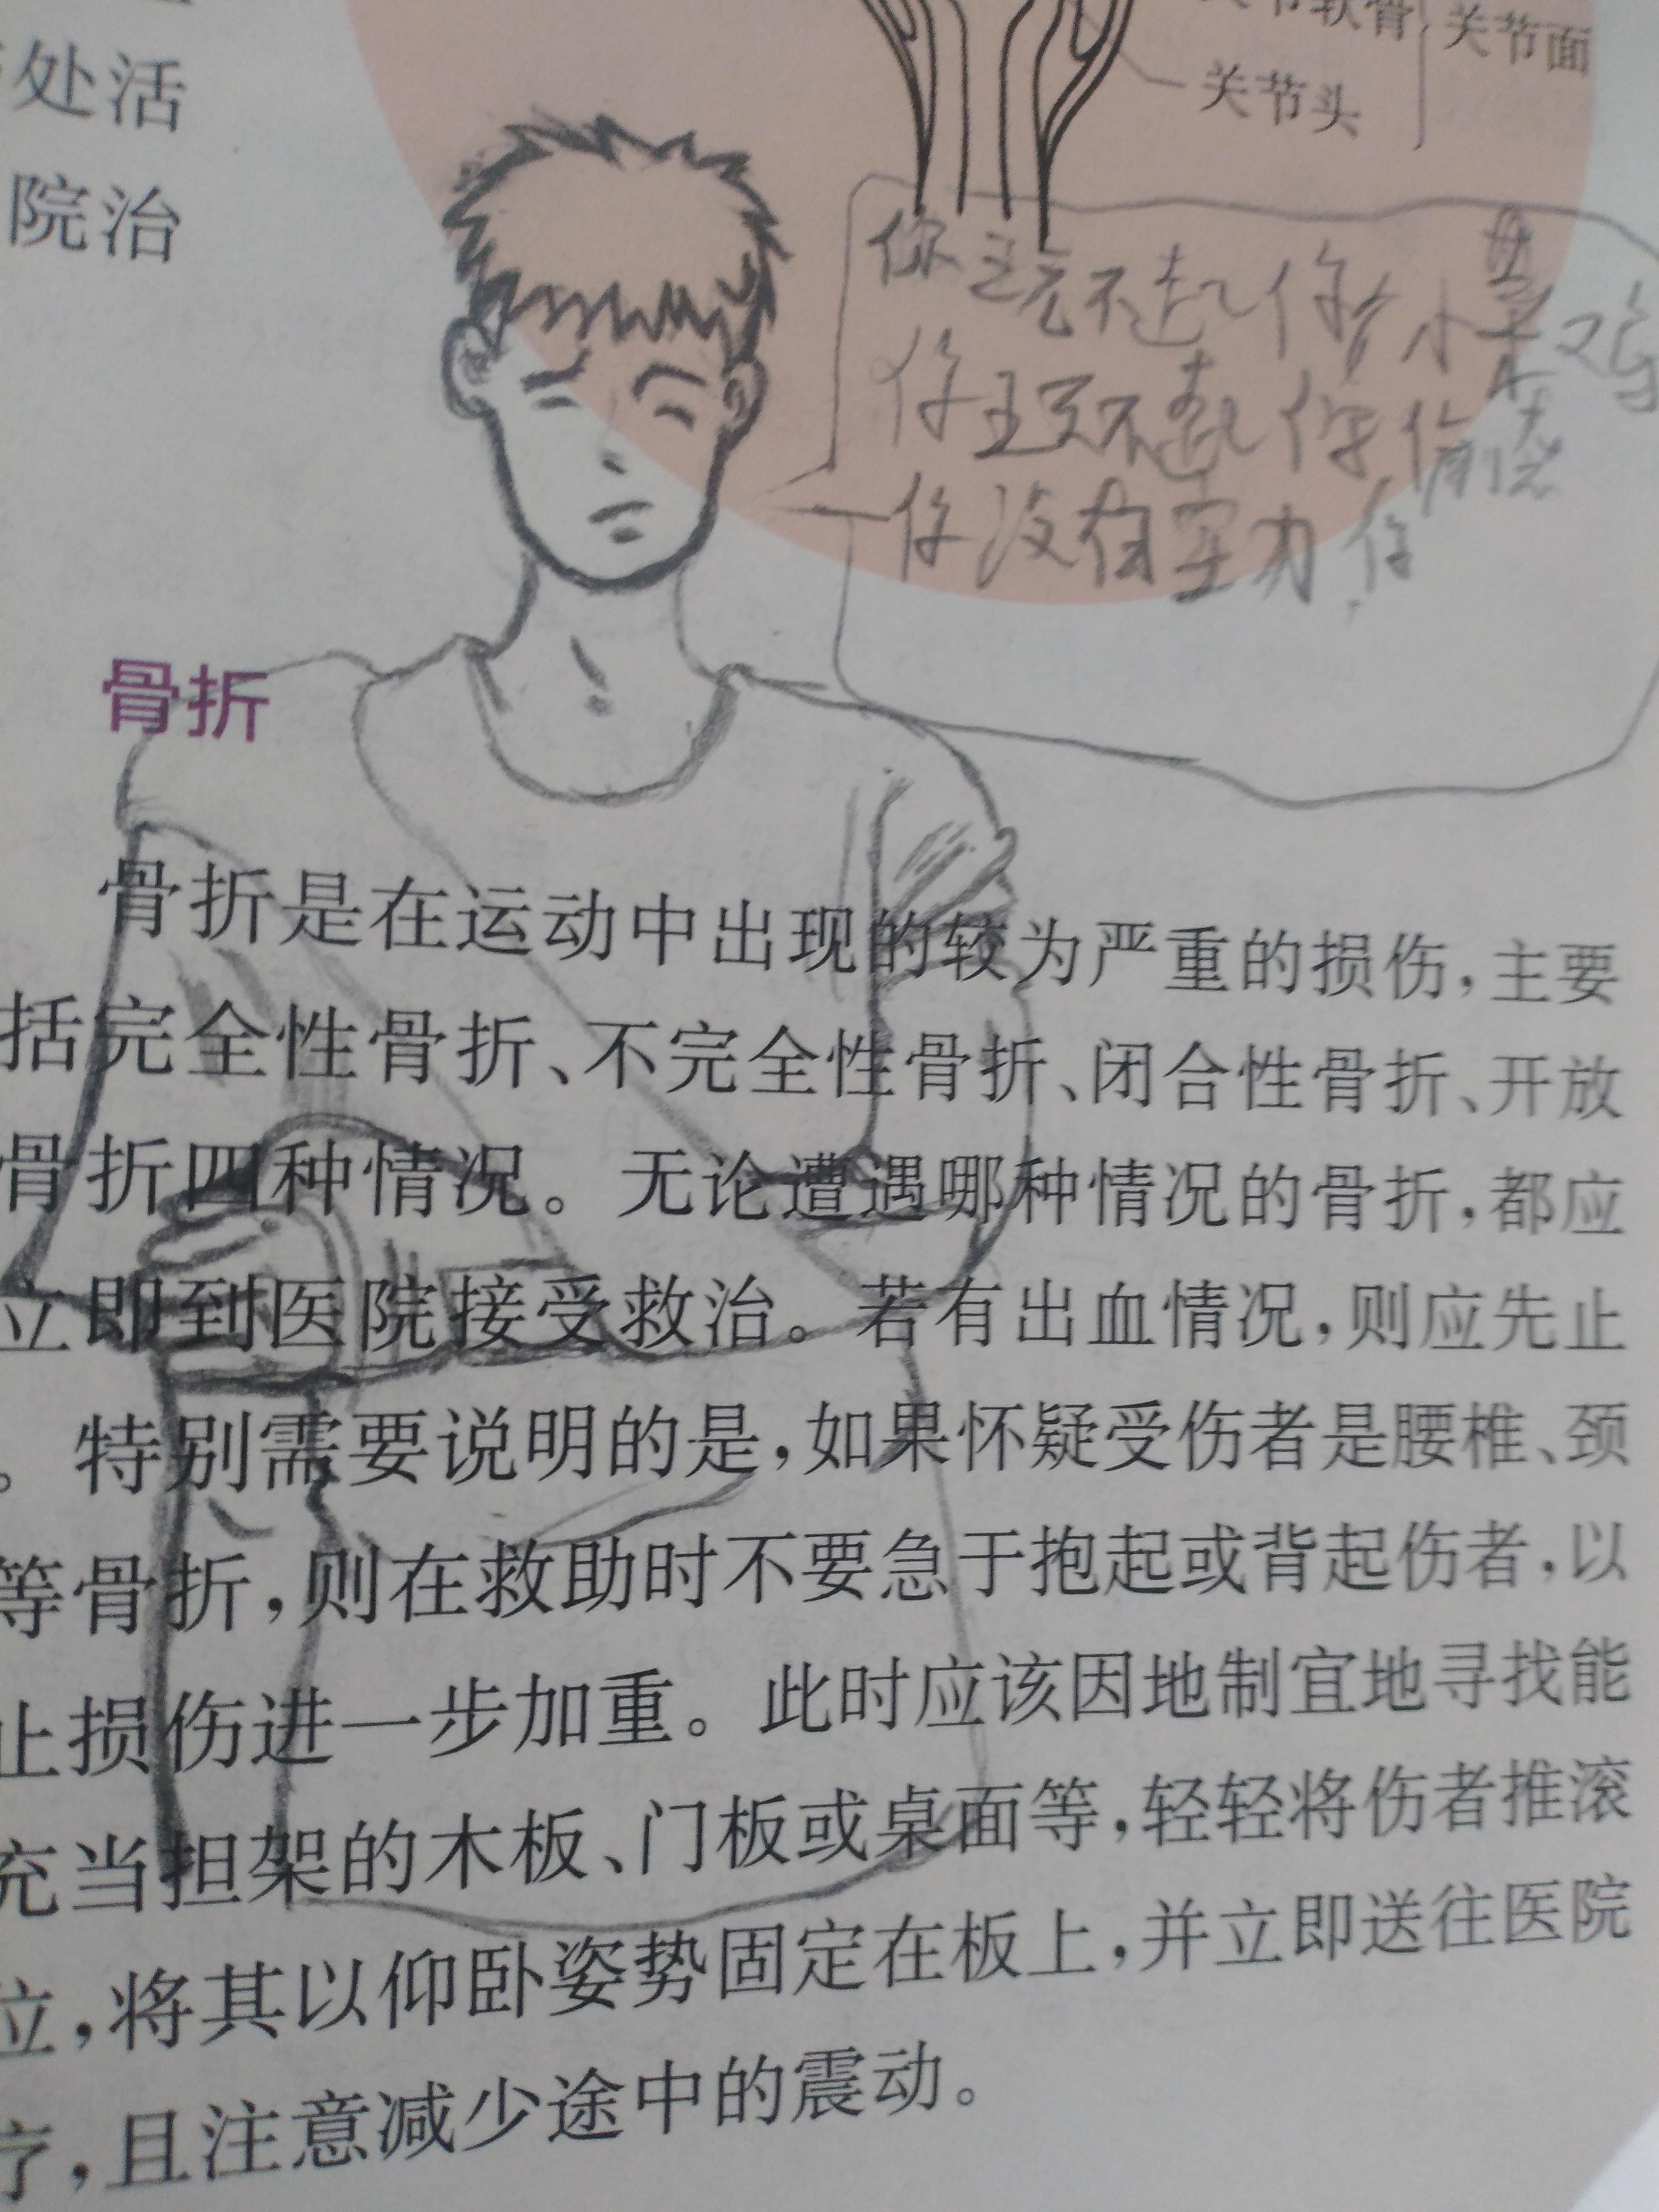 处活
院治
关节软骨
关节面
关节头
你玩不起你 小菜鸡
你玩不起 你
你没有实力 你
骨折
骨折是在运动中出现的较为严重的损伤，主要
括完全性骨折、不完全性骨折、闭合性骨折、开放
骨折四种情况。无论遭遇哪种情况的骨折，都应
立即到医院接受救治。若有出血情况，则应先止
。特别需要说明的是，如果怀疑受伤者是腰椎、颈
等骨折，则在救助时不要急于抱起或背起伤者，以
止损伤进一步加重。此时应该因地制宜地寻找能
充当担架的木板、门板或桌面等，轻轻将伤者推滚
位，将其以仰卧姿势固定在板上，并立即送往医院
疗，且注意减少途中的震动。